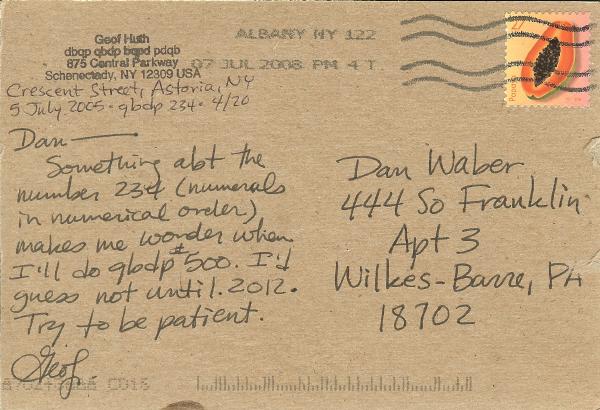 Geof Huth
dbqp qbdp bqpd pdqb
875 Central Parkway
Schenectady, NY 12309 USA
ALBANY NY 122
07 JUL 2008 PM 4 T
Crescent Street, Astoria, NY
5 July 2005 · qbdp 234 · 4/20
Dan—
Something abt the
number 234 (numerals
in numerical order)
makes me wonder when
I'll do qbdp #500. I'd
guess not until 2012.
Try to be patient.
Geof.
Dan Waber
444 So Franklin
Apt 3
Wilkes-Barre, PA
18702